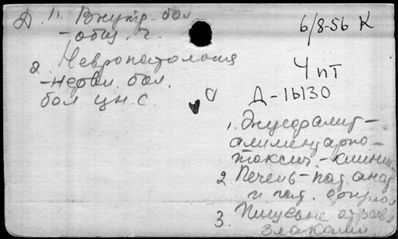 Д. 1. Внутр. бол
- общ. ч.
2. Невропатология
- нервн. бол.
бол цнс
6/8-56 К
4 пт
Д-16130
1. Энцефалит -
алиментарно-
токсич. - клиник
2 Печень - пат анат
и пат. физиол
3. Пищевые отравл
злаками